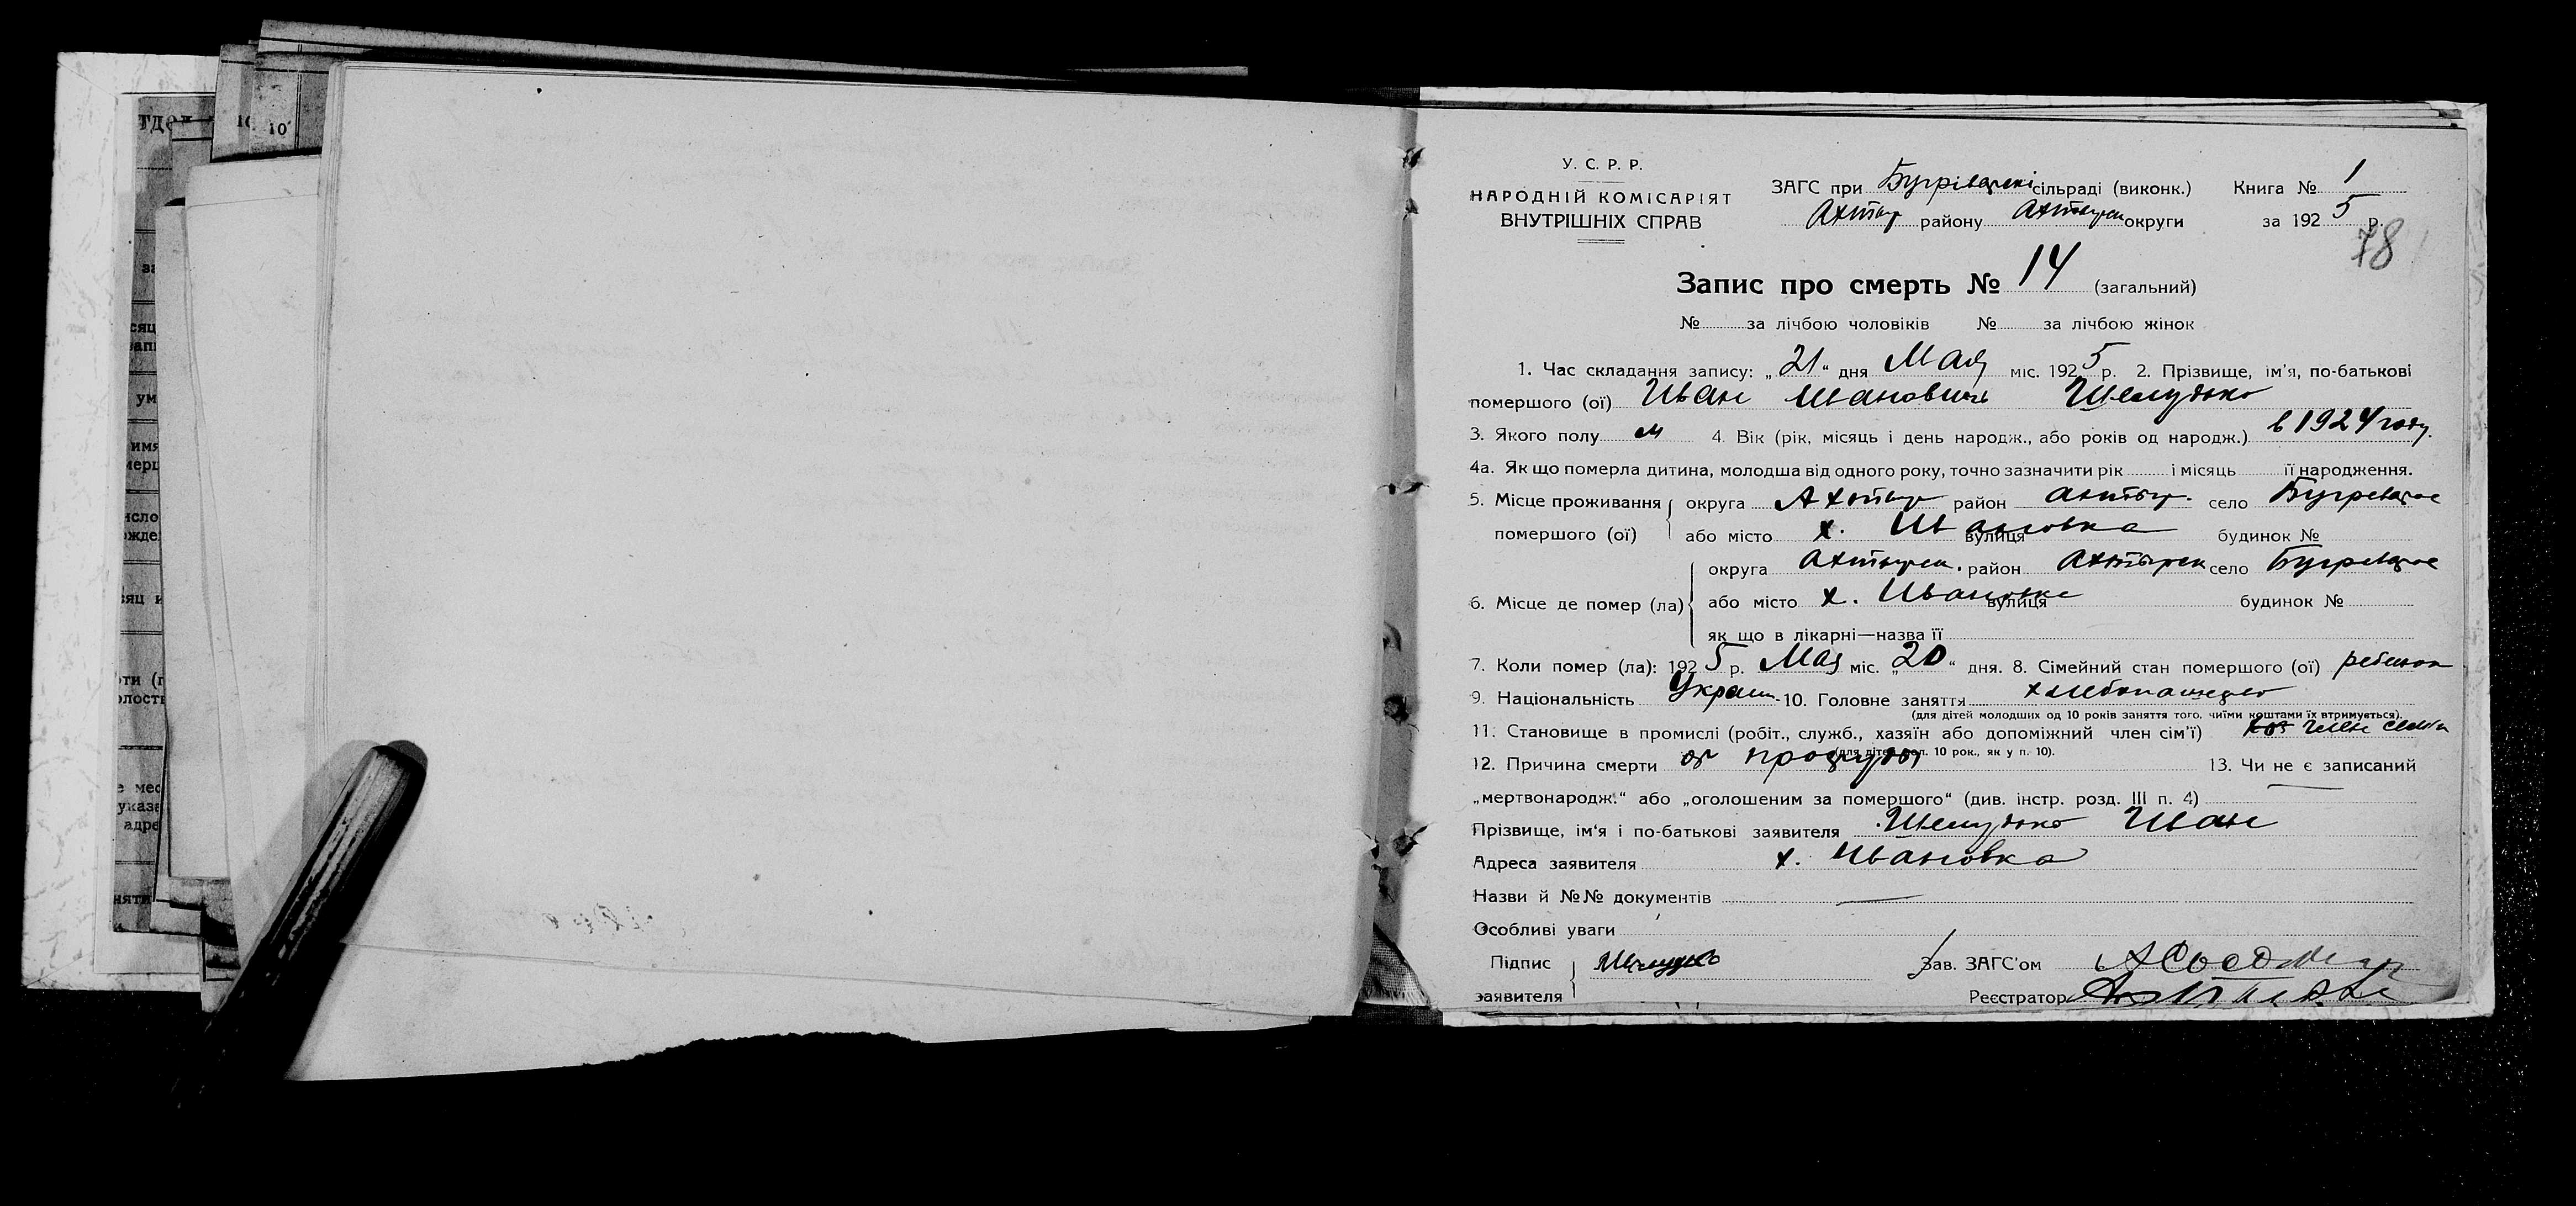 У. С. Р. Р.
НАРОДНІЙ КОМІСАРІЯТ
ВНУТРІШНІХ СПРАВ
ЗАГС при Бугріватскі сільраді (виконк.) Книга № 1
Ахтыр району Ахтырск округи за 1925 р.
78
Запис про смерть № 14 (загальний)
№ за лічбою чоловіків № за лічбою жінок
1. Час складання запису: „21“ дня Мая міс. 1925 р. 2. Прізвище, ім'я, по-батькові
помершого (ої) Иван Иванович Шелудько
3. Якого полу м 4. Вік (рік, місяць і день народж., або років од народж.) в 1924 году.
4а. Як що померла дитина, молодша від одного року, точно зазначити рік і місяць її народження.
5. Місце проживання округа Ахтыр район Ахтыр. село
помершого (ої) або місто х. Ивановка вулиця будинок №
округа Ахтырск. район Ахтырск село
6. Місце де помер (ла) або місто х. Ивановке вулиця будинок №
як що в лікарні—назва її
7. Коли помер (ла): 1925 р. Мая міс. „20“ дня. 8. Сімейний стан помершого (ої) ребенок
9. Національність Украин 10. Головне заняття хлебопашество
(для дітей молодших од 10 років заняття того, чиїми коштами їх втримується).
11. Становище в промислі (робіт., служб., хазяїн або допоміжний член сім'ї) член семьи
(для дітей мол. 10 рок., як у п. 10).
12. Причина смерти от простуды 13. Чи не є записаний
„мертвонародж.“ або „оголошеним за помершого“ (див. інстр. розд. III п. 4) —
Прізвище, ім'я і по-батькові заявителя Шелудько Иван
Адреса заявителя х. Ивановка
Назви й №№ документів —
Особливі уваги
Підпис Шелудько Зав. ЗАГС'ом
заявителя Реєстратор